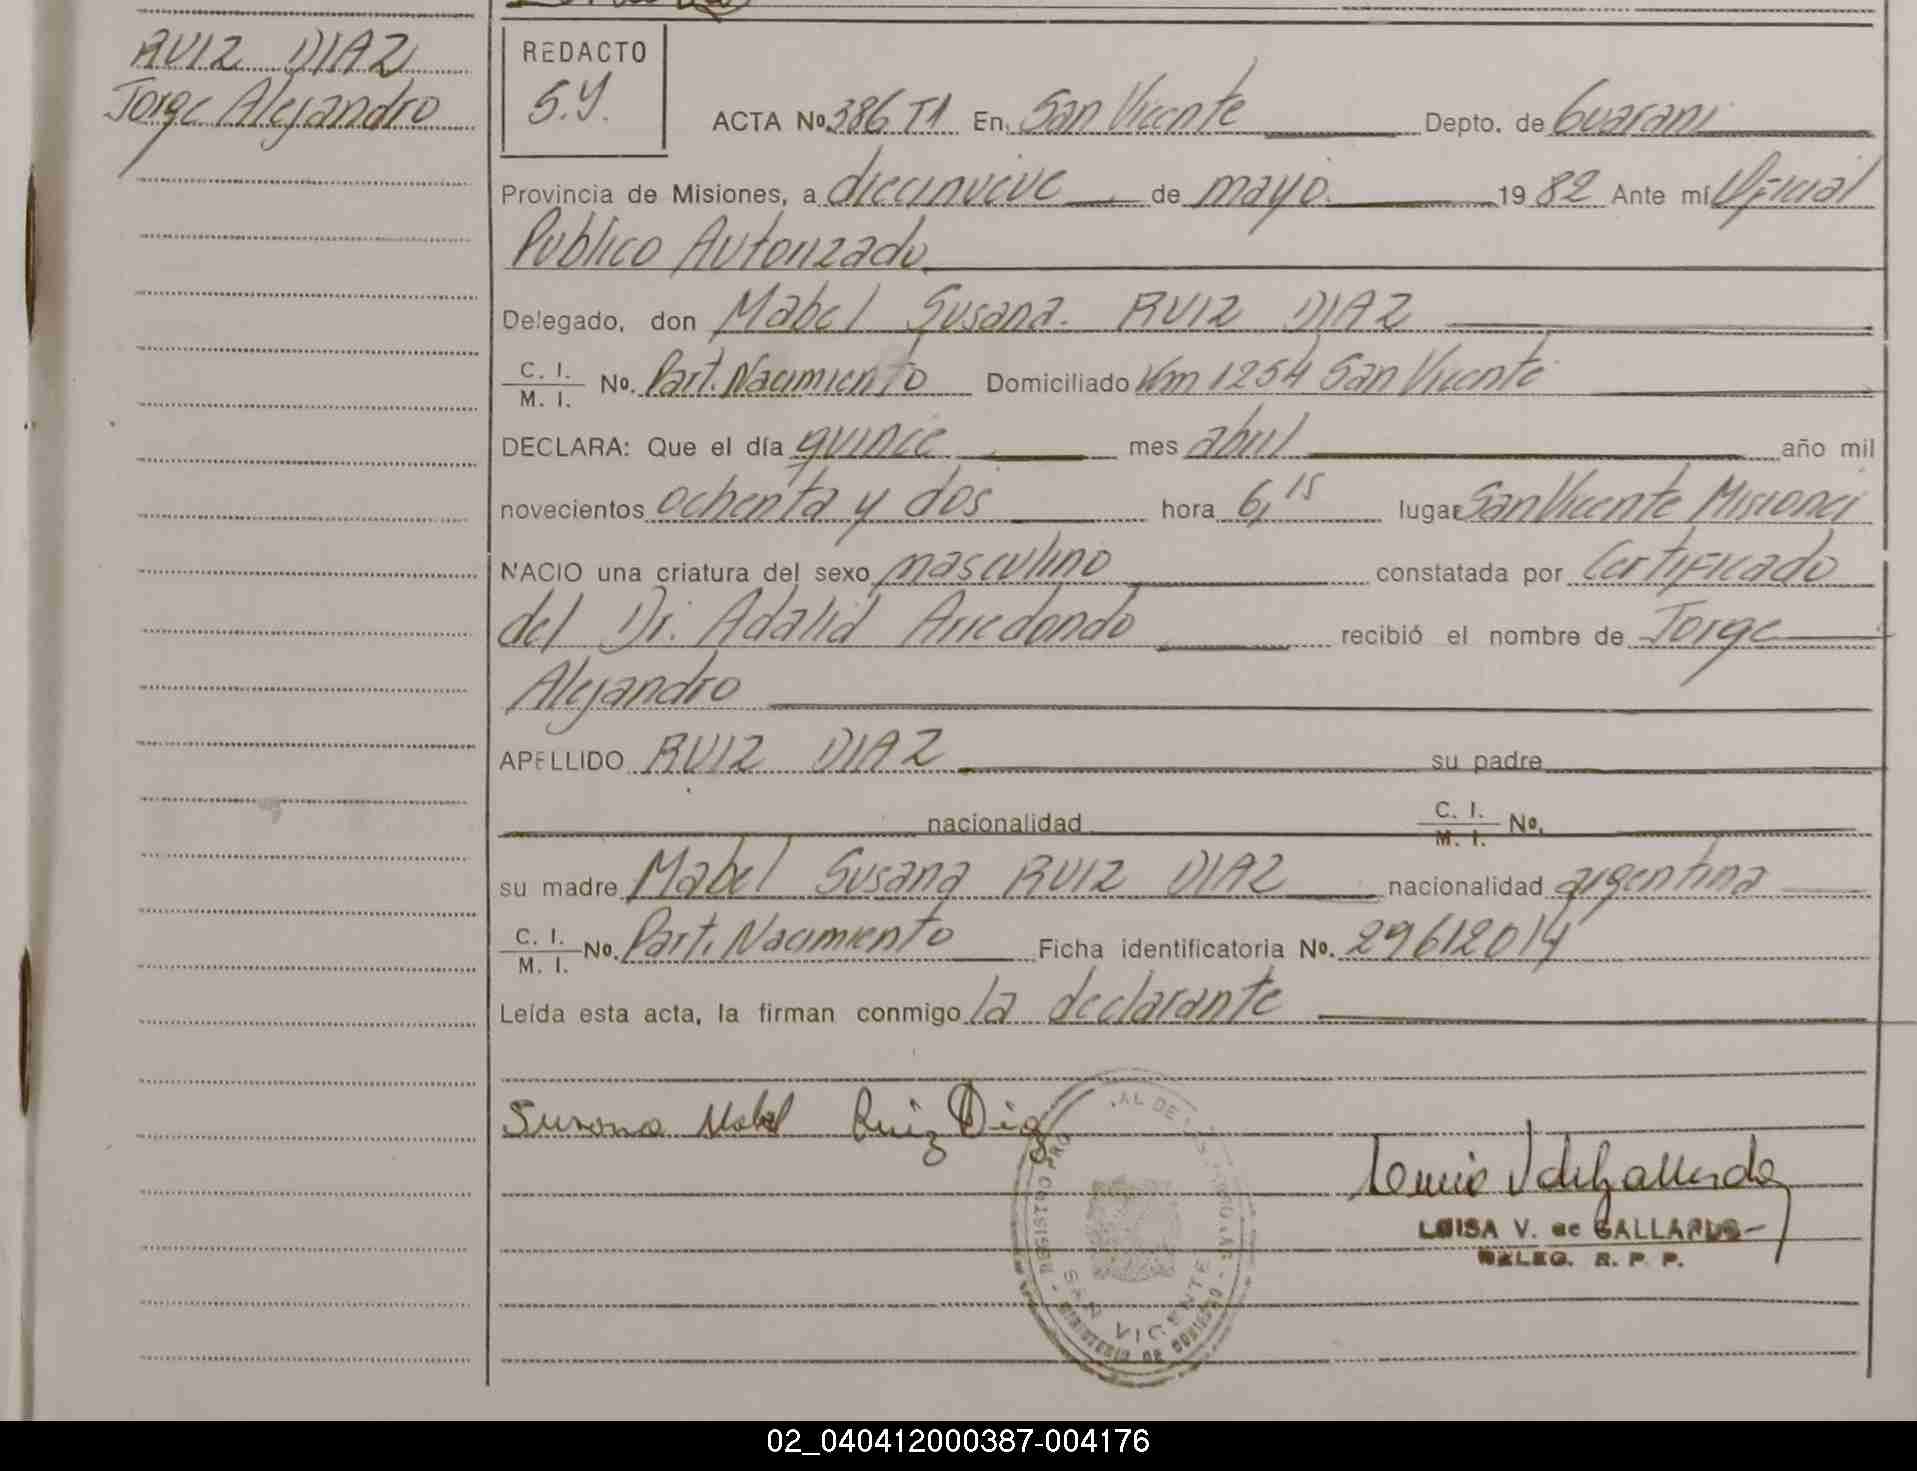 RUIZ DIAZ
Jorge Alejandro
REDACTO
S.Y.
ACTA No. 386 T1 En San Vicente Depto. de Guarani
Provincia de Misiones, a diecinueve de mayo 1982 Ante mí Oficial
Publico Autorizado
Delegado, don Mabel Susana RUIZ DIAZ
C. I.
M. I. No. Part. Nacimiento Domiciliado Km 1254 San Vicente
DECLARA: Que el día quince mes abril año mil
novecientos ochenta y dos hora 6,15 lugar San Vicente Misiones
NACIO una criatura del sexo masculino constatada por Certificado
del Dr. Adalid Arredondo recibió el nombre de Jorge
Alejandro
APELLIDO RUIZ DIAZ su padre
nacionalidad C. I.
M. I. No.
su madre Mabel Susana RUIZ DIAZ nacionalidad argentina
C. I.
M. I. No. Part. Nacimiento Ficha identificatoria No. 29612014
Leída esta acta, la firman conmigo la declarante
Susana Mabel Ruiz Diaz
LUISA V. de GALLARDO
DELEG. R. P. P.
REGISTRO PRO AL DE LAS PERSONAS
SAN VICENTE
MINISTERIO DE GOBIERNO
02_040412000387-004176